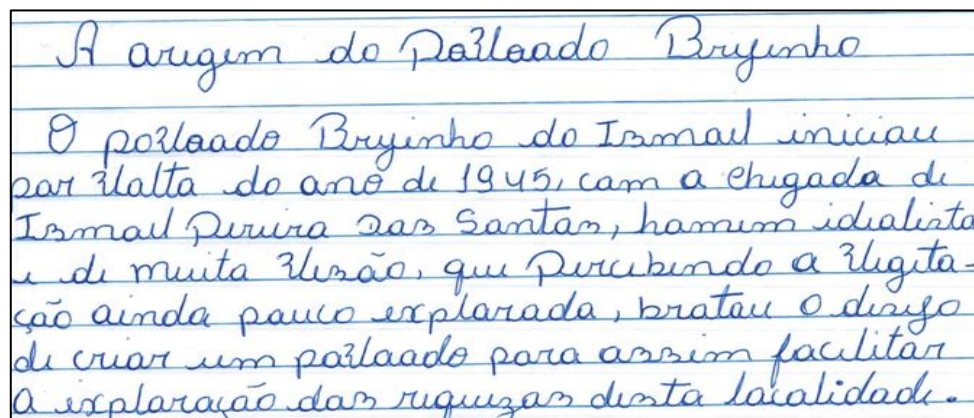 A origem do Povoado Brejinho
O povoado Brejinho do Ismael iniciou
por volta do ano de 1945, com a chegada de
Ismael Pereira Dos Santos, homem idealista
e de muita visão, que Percebendo a vegeta-
ção ainda pouco explorada, brotou o desejo
de criar um povoado para assim facilitar
a exploração das riquezas desta localidade.